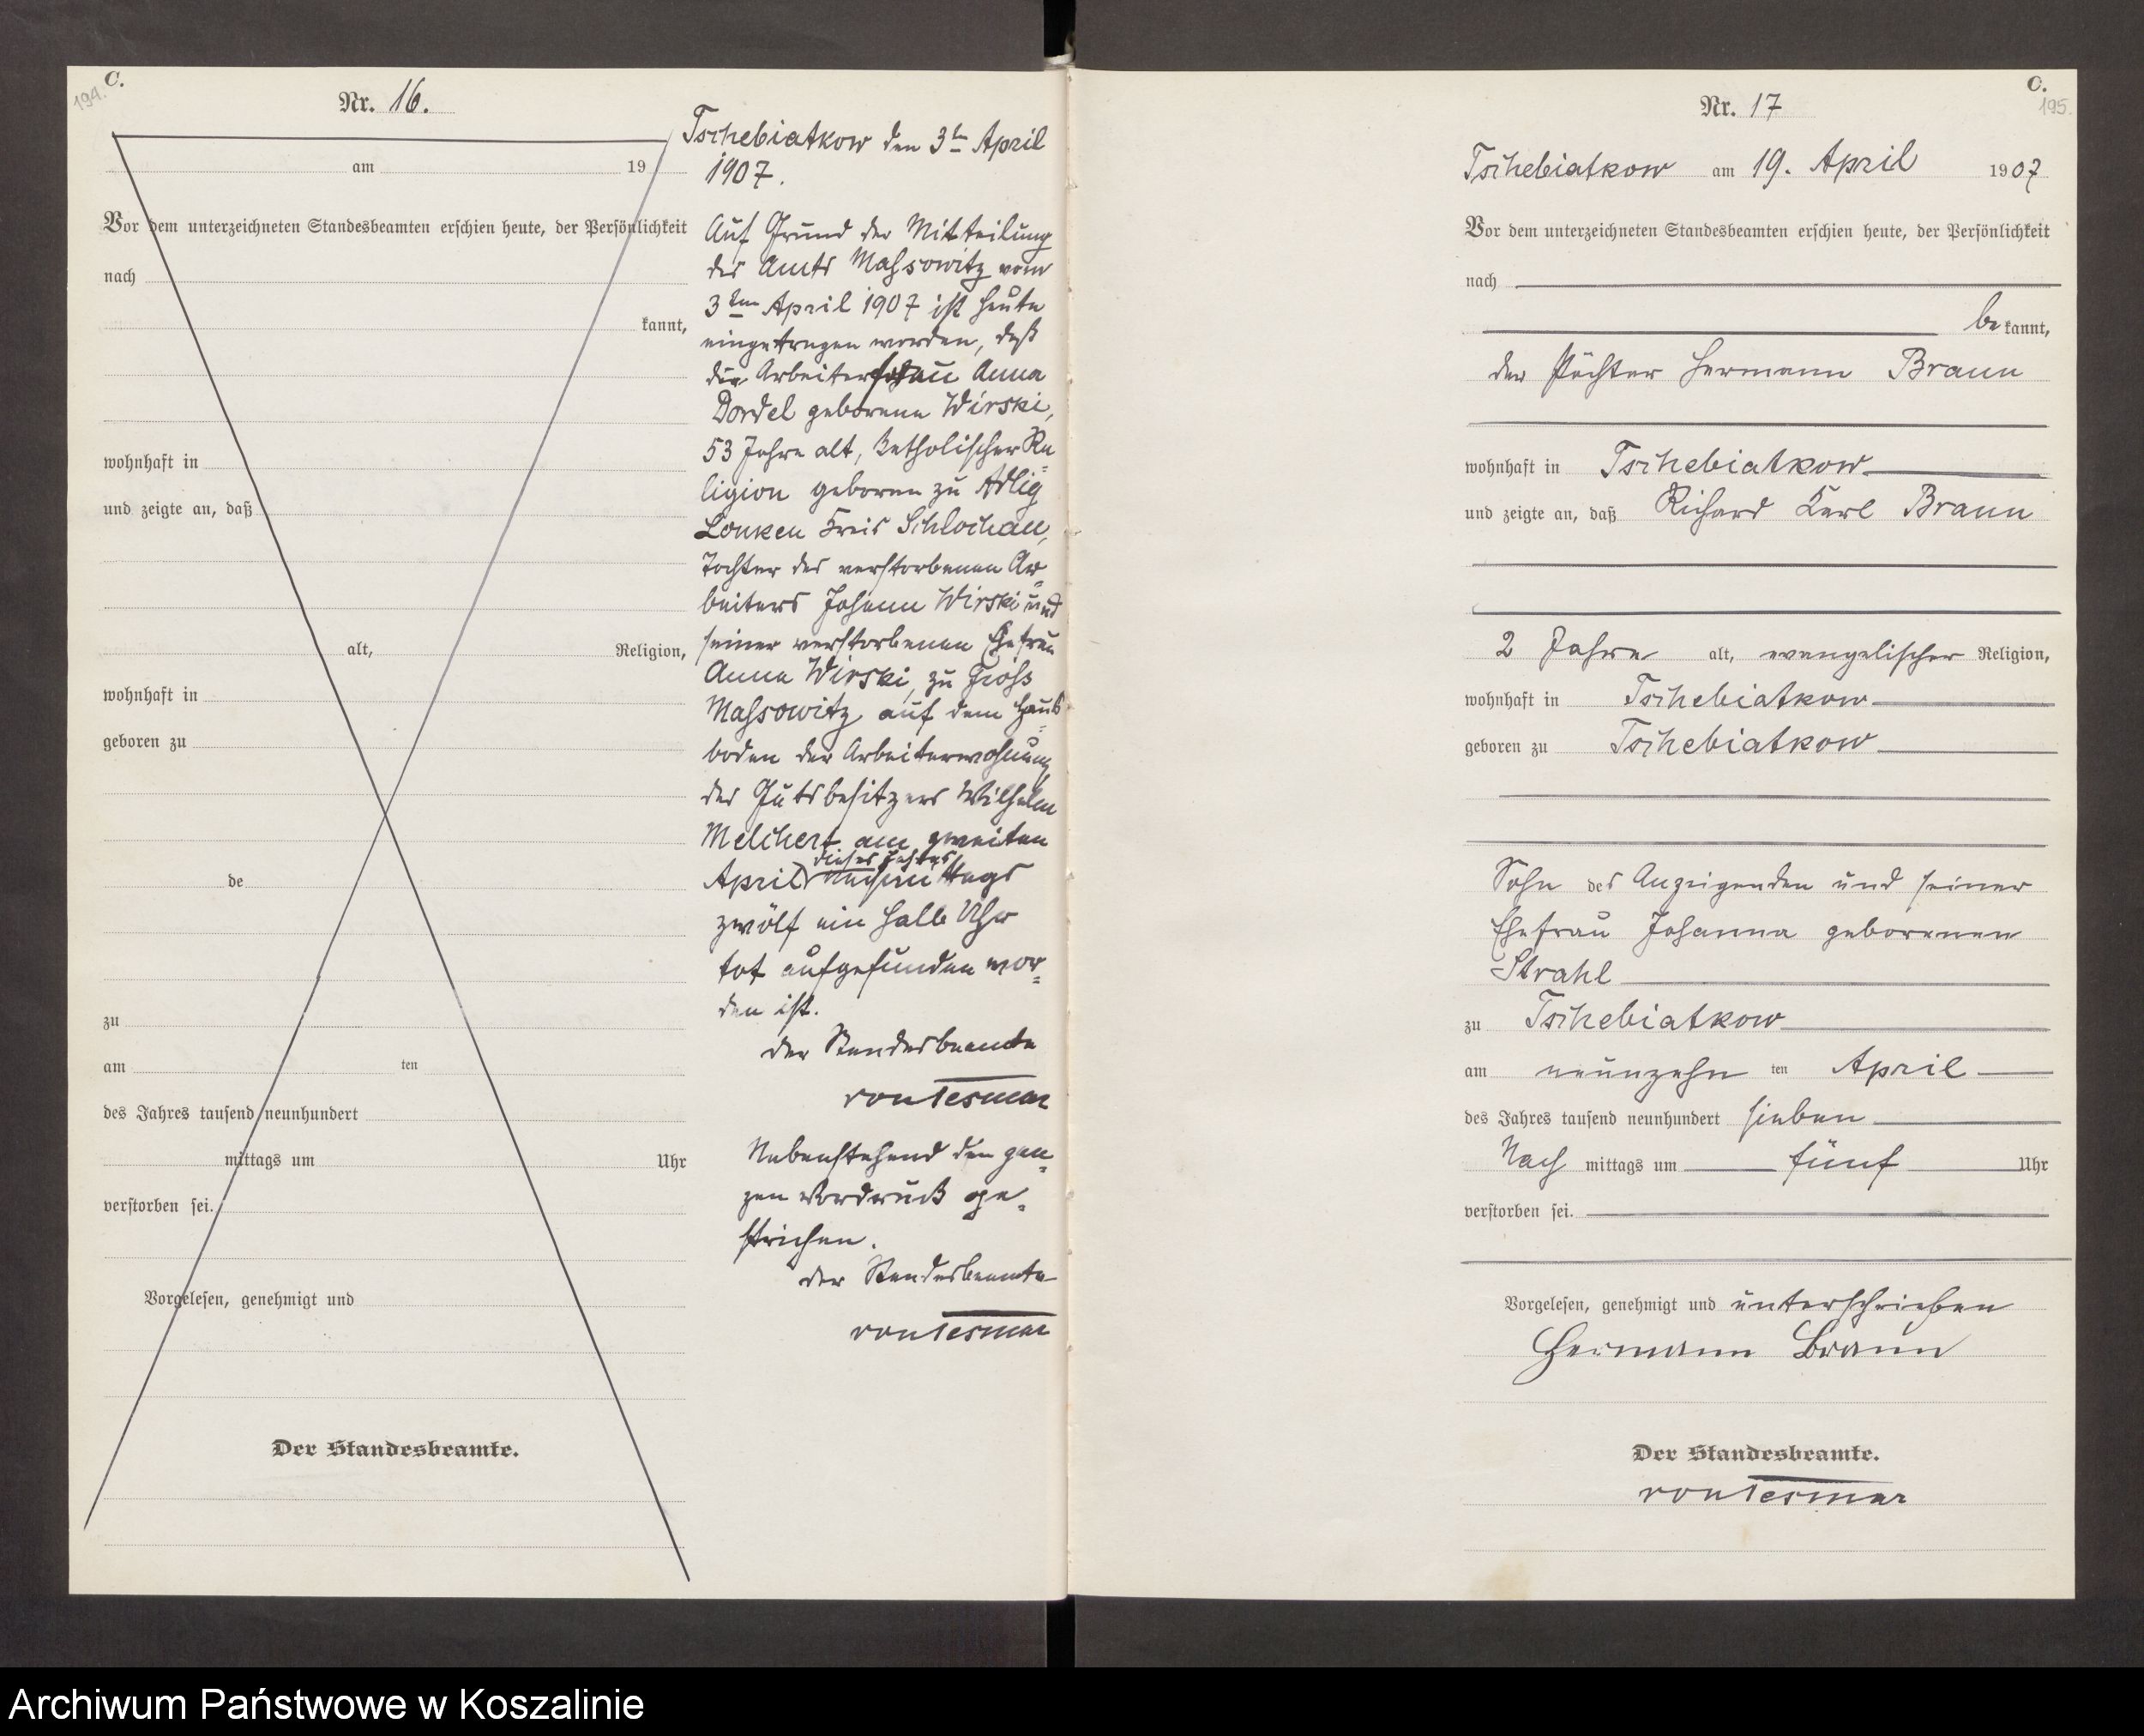 194.
C.
Nr. 16.
am 19
Vor dem unterzeichneten Standesbeamten erschien heute, der Persönlichkeit
nach
kannt,
wohnhaft in
und zeigte an, daß
alt, Religion,
wohnhaft in
geboren zu
de
zu
am ten
des Jahres tausend neunhundert
mittags um Uhr
verstorben sei.
Vorgelesen, genehmigt und
Der Standesbeamte.
Tschebiatkow den 3t April
1907.
Auf Grund der Mitteilung
des Amts Massowitz vom
3ten April 1907 ist heute
eingetragen worden, daß
die Arbeiterfrau Anna
Dordel geborene Wirski,
53 Jahre alt, katholischer Re=
ligion geboren zu Adlig
Lonken Kreis Schlochau,
Tochter des verstorbenen Ar=
beiters Johann Wirski und
seiner verstorbenen Ehefrau
Anna Wirski, zu Gross
Massowitz auf dem Haus=
boden der Arbeiterwohnung
des Gutsbesitzers Wilhelm
Melchert am zweiten
dieses Jahres
April nachmittags
zwölf ein halb Uhr
tot aufgefunden wor=
den ist.
Der Standesbeamte
von Tesmar
Nebenstehend den gan=
zen Vordruck ge=
strichen.
Der Standesbeamte
von Tesmar
C.
195.
Nr. 17
Tschebiatkow am 19. April 1907
Vor dem unterzeichneten Standesbeamten erschien heute, der Persönlichkeit
nach
be kannt,
der Pächter Hermann Braun
wohnhaft in Tschebiatkow
und zeigte an, daß Richard Karl Braun
2 Jahre alt, evangelischer Religion,
wohnhaft in Tschebiatkow
geboren zu Tschebiatkow
Sohn des Anzeigenden und seiner
Ehefrau Johanna geborenen
Strahl
zu Tschebiatkow
am neunzehn ten April
des Jahres tausend neunhundert sieben
Nach mittags um fünf Uhr
verstorben sei.
Vorgelesen, genehmigt und unterschrieben
Hermann Braun
Der Standesbeamte.
von Tesmar
Archiwum Państwowe w Koszalinie